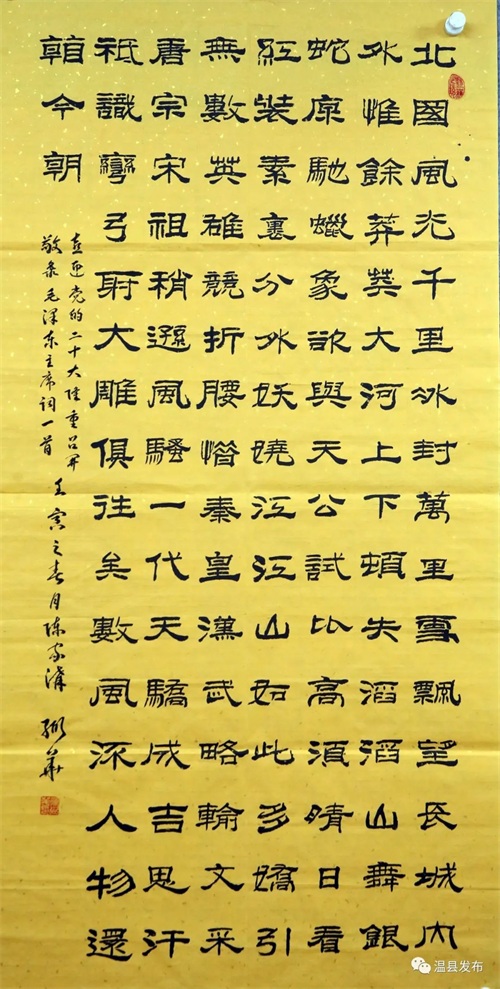 北國風光千里冰封萬里雪飄望長城內
外惟餘莽莽大河上下頓失滔滔山舞銀
蛇原馳蠟象欲與天公試比高須晴日看
紅裝素裹分外妖嬈江江山如此多嬌引
無數英雄競折腰惜秦皇漢武略輸文采
唐宗宋祖稍遜風騷一代天驕成吉思汗
祗識彎弓射大雕俱往矣數風流人物還
今朝
喜迎党的二十大隆重召开
敬录毛泽东主席词一首
壬寅之春月陈家溝
华
温县发布